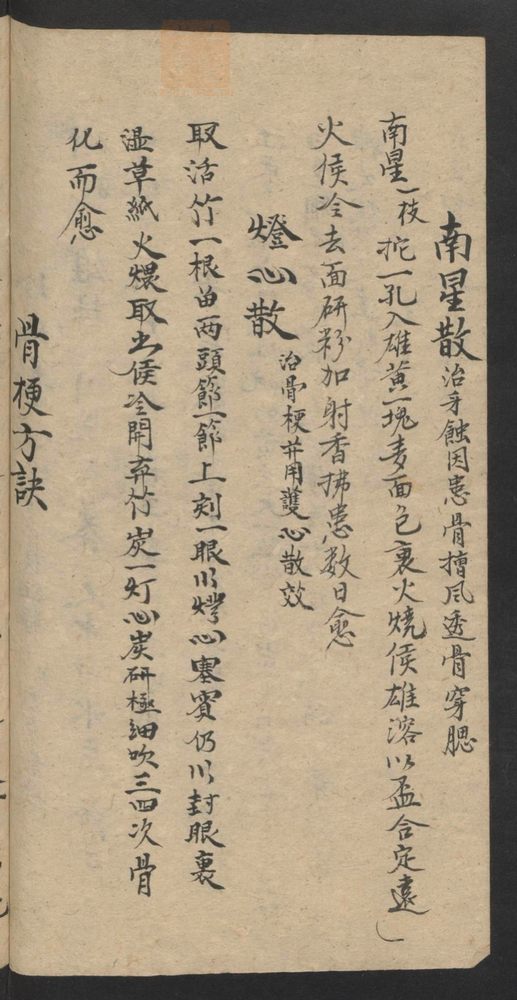 南星散 治牙蝕因患骨擋风透骨穿腮
南星一枝挖一孔入雄黄一塊麦面包裹火燒侯雄溶以盃合定遠
火侯冷去面研粉加射香拂患数日愈
燈心散 治骨梗并用護心散效
取活竹一根留两頭節節上刻一眼以燈心塞實仍以封眼裹
湿草紙火煨取出侯冷開弃竹炭一灯心炭研極細吹三四次骨
化而愈
骨梗方訣